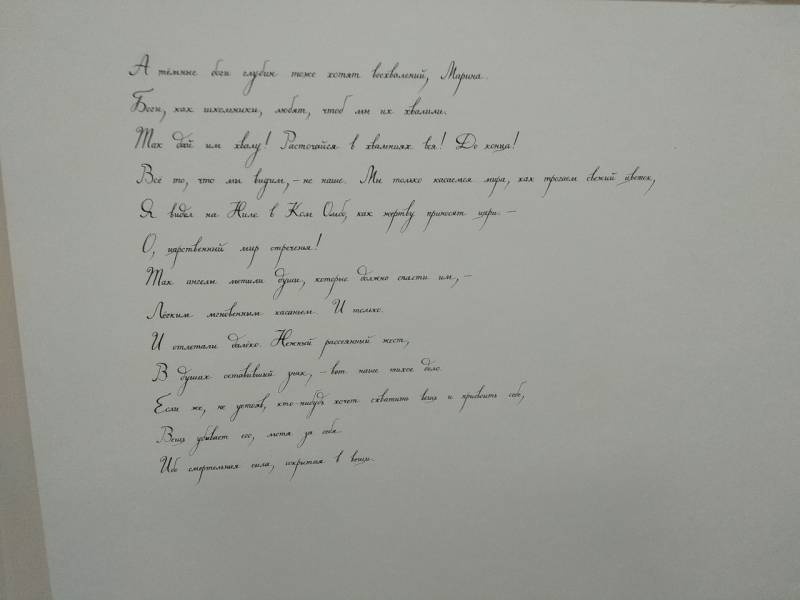 А тёмные боги глубин тоже хотят восхвалений, Марина.
Боги, как школьники, любят, чтоб мы их хвалили.
Так дай им хвалу! Расточайся в хвалениях вся! До конца!
Всё то, что мы видим, – не наше. Мы только касаемся мира, как трогаем свежий цветок,
Я видел на Ниле в Ком Омбо, как жертву приносят цари. –
О, царственный мир отреченья!
Так ангелы метили души, которые должно спасти им, –
Лёгким мгновенным касаньем. И только.
И отлетали далёко. Нежный рассеянный жест,
В душах оставивший знак, – вот наше тихое дело.
Если же, не устояв, кто-нибудь хочет схватить вещь и присвоить себе,
Вещь убивает его, мстя за себя.
Ибо смертельная сила, сокрытая в вещи.